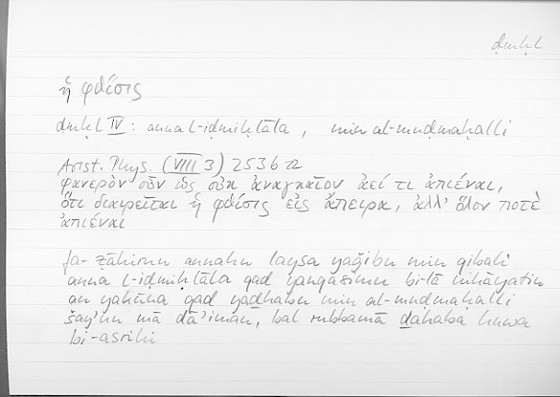 ḍmḥl
ἡ φθίσις
ḍmḥl IV : anna l-iḍmiḥlāla , min al-muḍmaḥalli
Arist. Phys. (VIII 3) 253b
φανερὸν οὖν ὡς οὐκ ἀναγκαῖον ἀεί τι ἀπιέναι,
ὅτι διαιρεῖται ἡ φθίσις εἰς ἄπειρα, ἀλλ' ὅλον ποτὲ
ἀπιέναι
fa-ẓāhirun annahu laysa yaǧibu min qibali
anna l-iḍmiḥlāla qad yanqasimu bi-lā nihāyatin
an yakūna qad yaḏhabu min al-muḍmaḥalli
šay'un mā dā'iman, bal rubbamā ḏahaba huwa
bi-asrihi